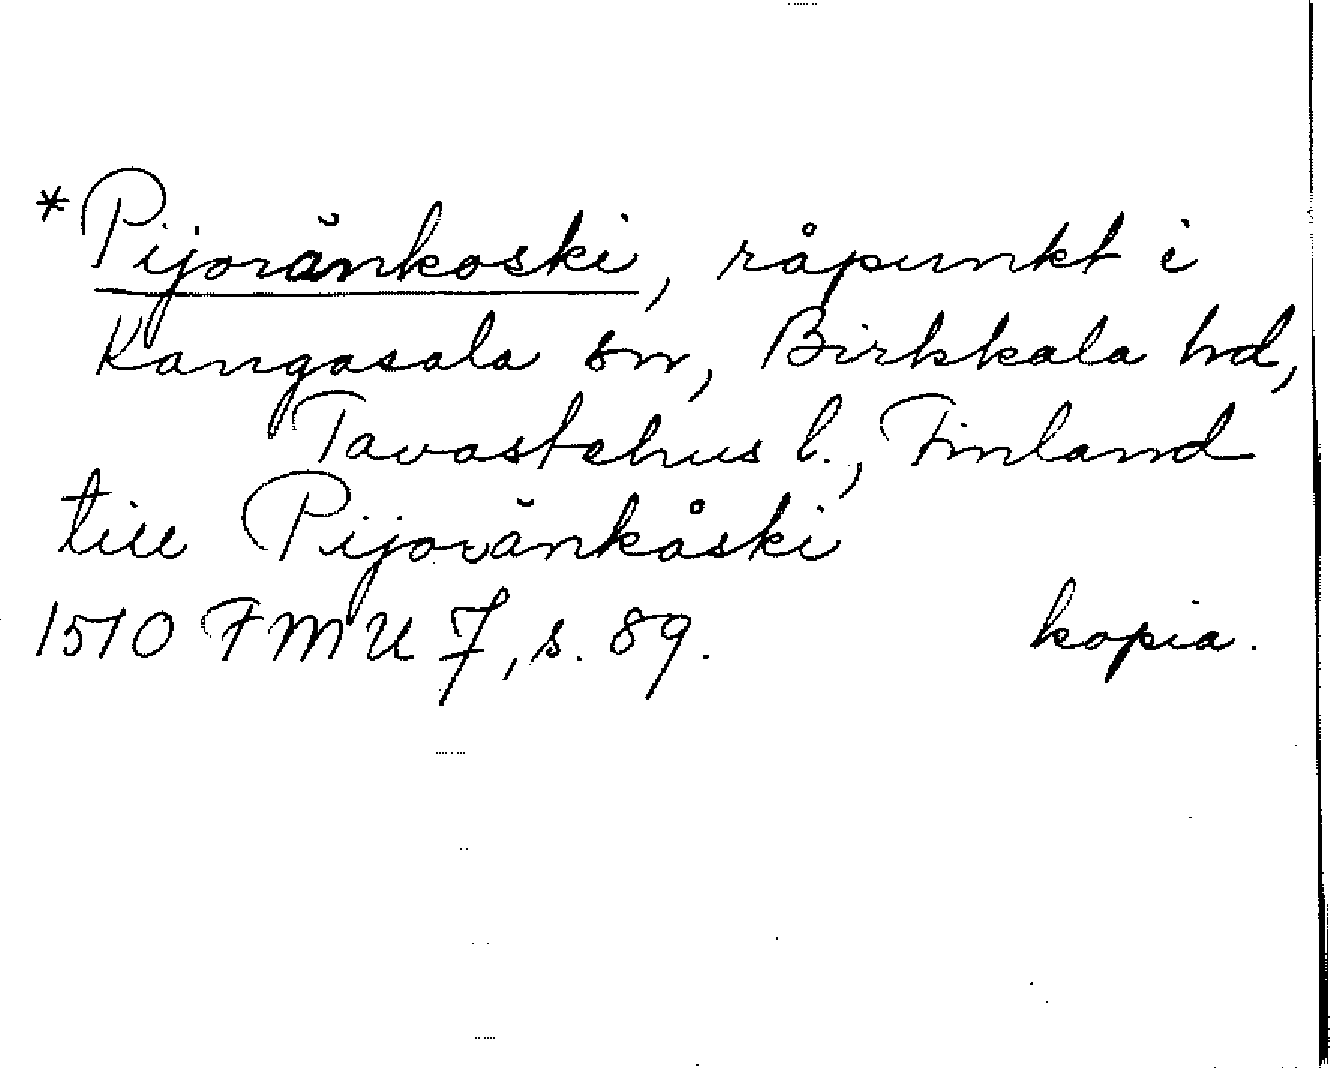 *Pijoränkoski, råpunkt i
Kangasala sn, Birkkala hd,
Tavastehus l., Finland
till Pijoränkåski
1510 FMU 7, s. 89. kopia.